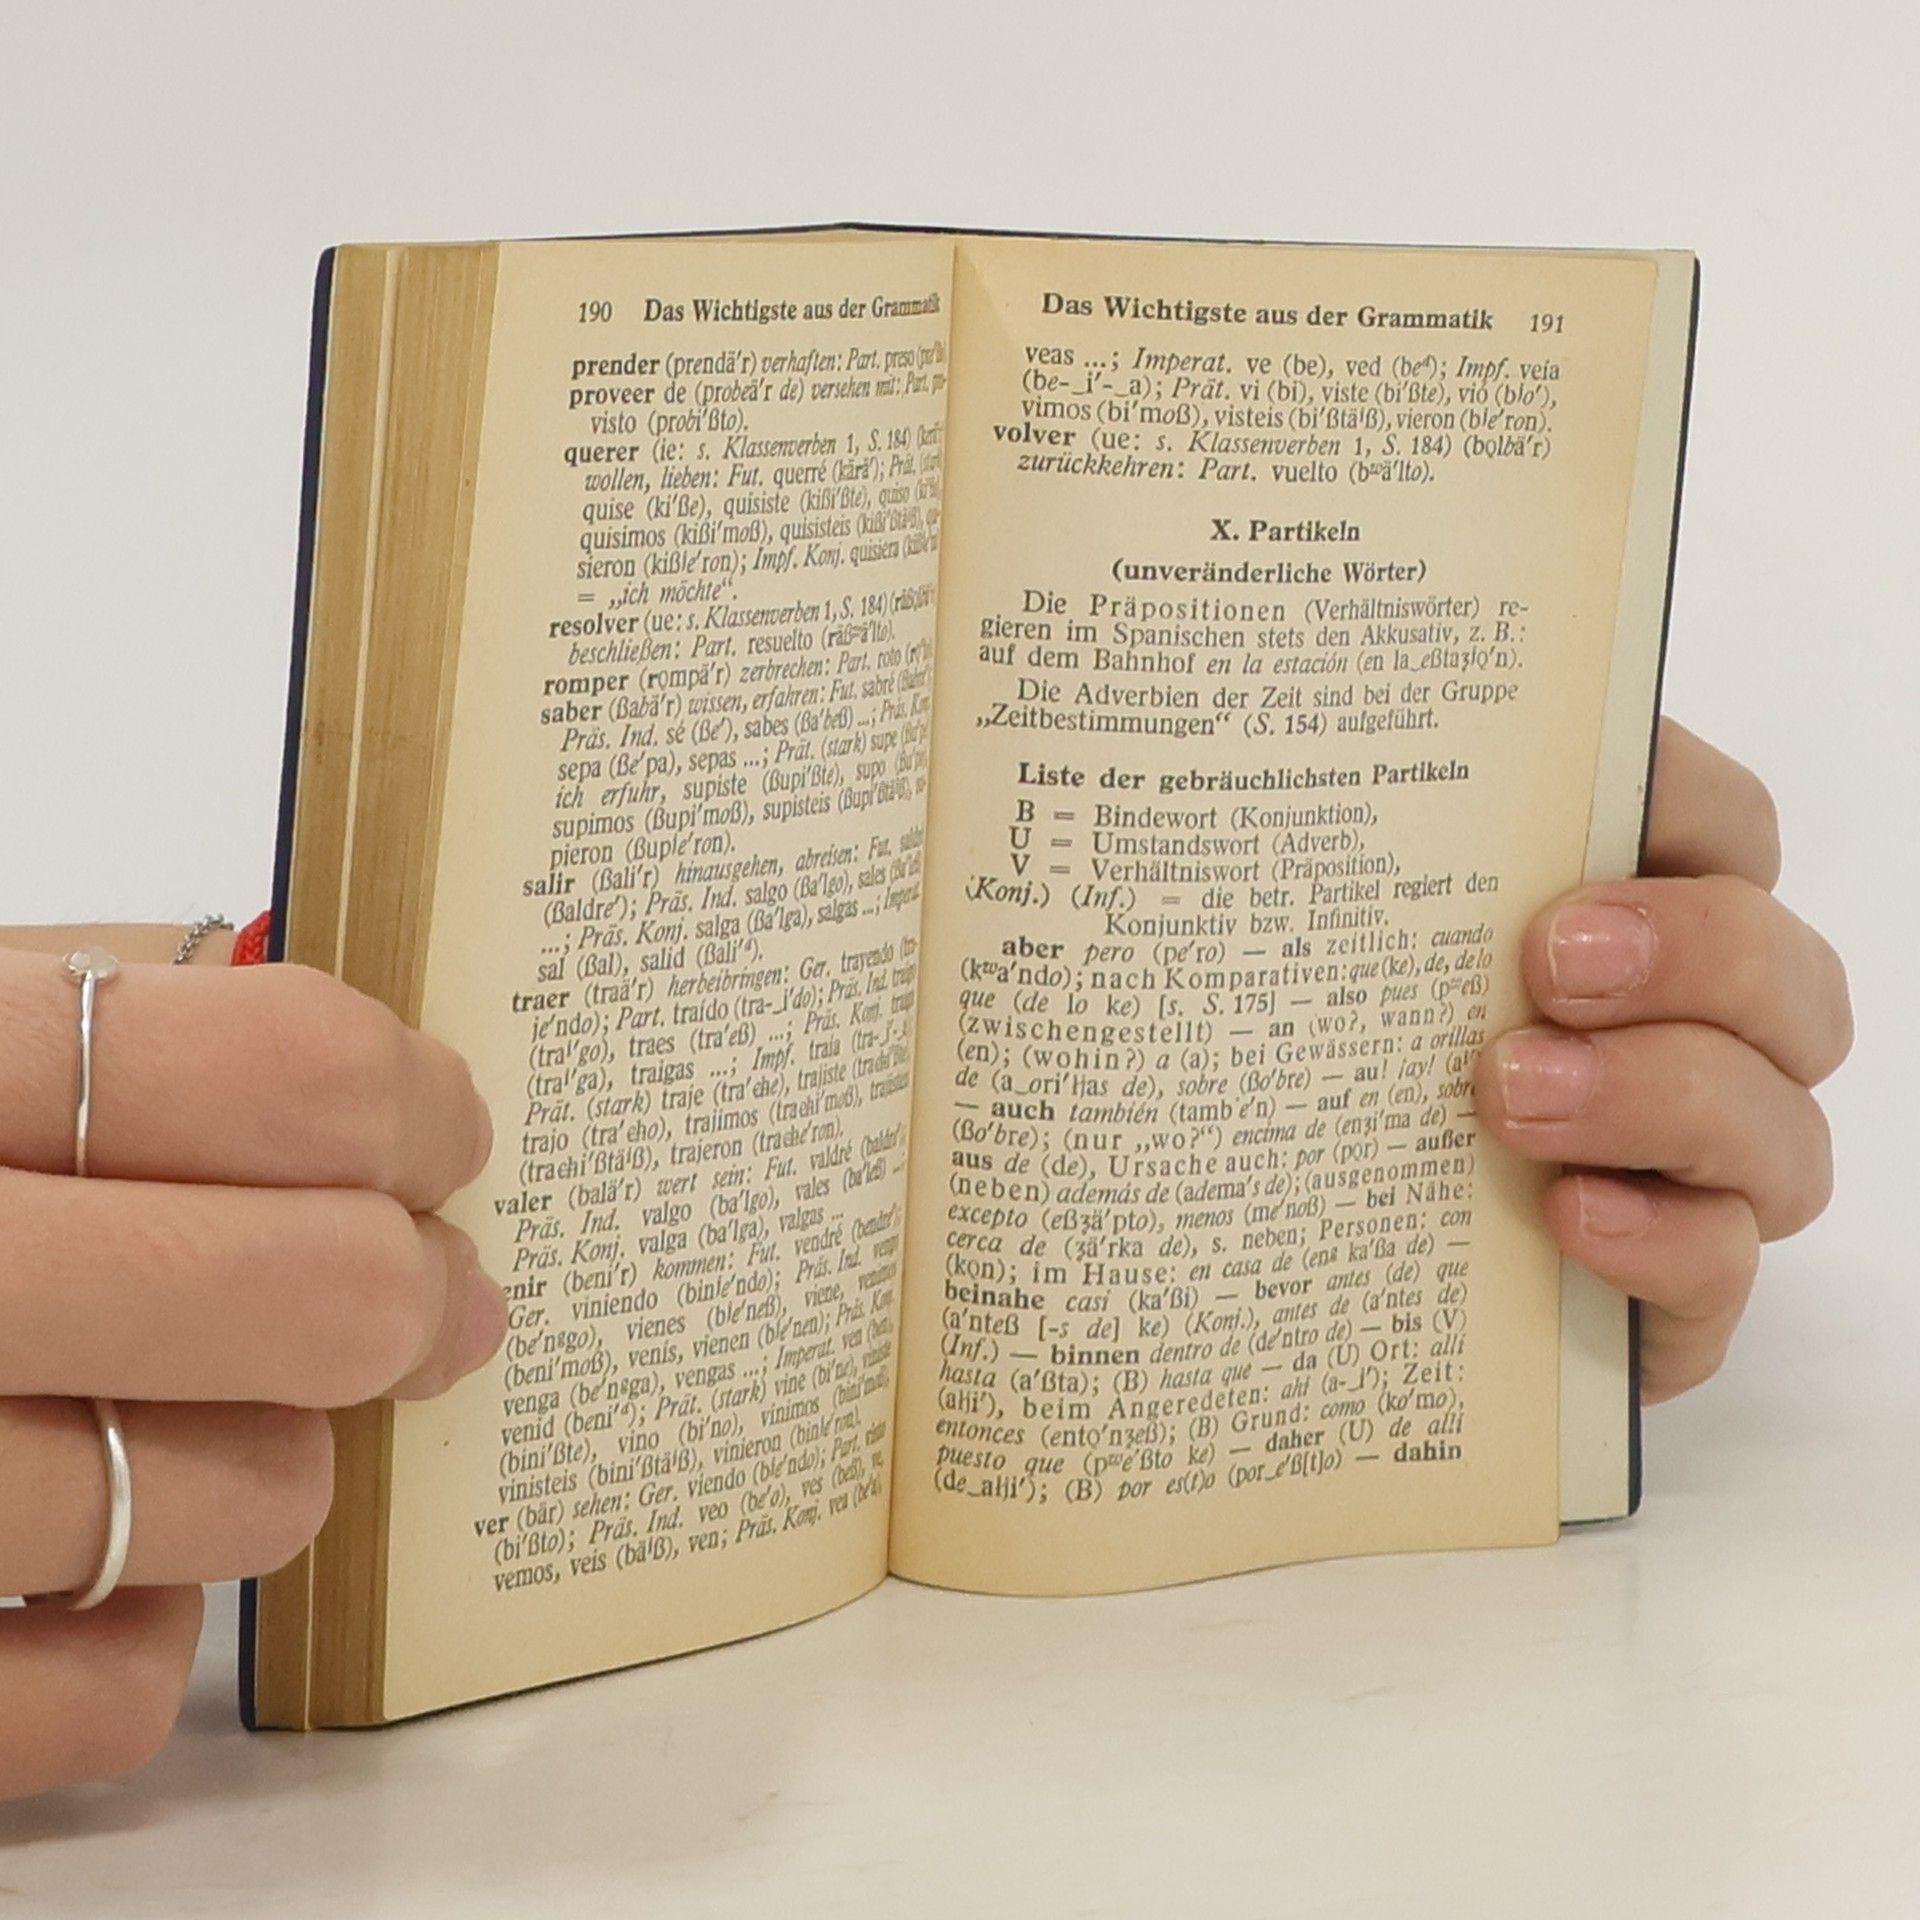 190 Das Wichtigste aus der Grammatik
prender (prendä'r) verhaften: Part. preso
proveer de (probeä'r de) versehen mit: Part. pro-
visto (probi'ßto).
querer (ie: s. Klassenverben 1, S. 184)
wollen, lieben: Fut. querré (kärä'); Prät. (stark)
quise (ki'ße), quisiste (kißi'ßte), quiso
quisimos (kißi'moß), quisisteis (kißi'ßtäⁱß), qui-
sieron (kißi̯e'ron); Impf. Konj. quisiera
= „ich möchte“.
resolver (ue: s. Klassenverben 1, S. 184)
beschließen: Part. resuelto (räßʷä'lto).
romper (rompä'r) zerbrechen: Part. roto
saber (ßabä'r) wissen, erfahren: Fut. sabré
Präs. Ind. sé (ße'), sabes (ßa'beß) ...; Präs. Konj.
sepa (ße'pa), sepas ...; Prät. (stark) supe
ich erfuhr, supiste (ßupi'ßte), supo
supimos (ßupi'moß), supisteis (ßupi'ßtäⁱß), su-
pieron (ßupi̯e'ron).
salir (ßali'r) hinausgehen, abreisen: Fut. saldré
(ßaldre'); Präs. Ind. salgo (ßa'lgo), sales
...; Präs. Konj. salga (ßa'lga), salgas ...; Imperat.
sal (ßal), salid (ßali'ᵈ).
traer (traä'r) herbeibringen: Ger. trayendo (tra-
je'ndo); Part. traído (tra-‿i'do); Präs. Ind. traigo
(traⁱ'go), traes (tra'eß) ...; Präs. Konj. traiga
(traⁱ'ga), traigas ...; Impf. traía (tra-‿i'-‿a)
Prät. (stark) traje (tra'che), trajiste
trajo (tra'cho), trajimos (trachi'moß), trajisteis
(trachi'ßtäⁱß), trajeron (trache'ron).
valer (balä'r) wert sein: Fut. valdré (baldre');
Präs. Ind. valgo (ba'lgo), vales (ba'leß) ...;
Präs. Konj. valga (ba'lga), valgas ...
enir (beni'r) kommen: Fut. vendré (bendre');
Ger. viniendo (bini̯e'ndo); Präs. Ind. vengo
(be'nᵍgo), vienes (bi̯e'neß), viene, venimos
(beni'moß), venís, vienen (bi̯e'nen); Präs. Konj.
venga (be'nᵍga), vengas ...; Imperat. ven (ben),
venid (beni'ᵈ); Prät. (stark) vine (bi'ne), viniste
(bini'ßte), vino (bi'no), vinimos (bini'moß),
vinisteis (bini'ßtäⁱß), vinieron (bini̯e'ron).
ver (bär) sehen: Ger. viendo (bi̯e'ndo); Part. visto
(bi'ßto); Präs. Ind. veo (be'o), ves (beß), ve,
vemos, veis (bäⁱß), ven; Präs. Konj. vea (be'a),
Das Wichtigste aus der Grammatik 191
veas ...; Imperat. ve (be), ved (beᵈ); Impf. veía
(be-‿i'-‿a); Prät. vi (bi), viste (bi'ßte), vió (bi̯o'),
vimos (bi'moß), visteis (bi'ßtäⁱß), vieron (bi̯e'ron).
volver (ue: s. Klassenverben 1, S. 184) (bǫlbä'r)
zurückkehren: Part. vuelto (bʷä'lto).
X. Partikeln
(unveränderliche Wörter)
Die Präpositionen (Verhältniswörter) re-
gieren im Spanischen stets den Akkusativ, z. B.:
auf dem Bahnhof en la estación (en la‿eßtaʒi̯ǫ'n).
Die Adverbien der Zeit sind bei der Gruppe
„Zeitbestimmungen“ (S. 154) aufgeführt.
Liste der gebräuchlichsten Partikeln
B = Bindewort (Konjunktion),
U = Umstandswort (Adverb),
V = Verhältniswort (Präposition),
(Konj.) (Inf.) = die betr. Partikel regiert den
Konjunktiv bzw. Infinitiv.
aber pero (pe'ro) — als zeitlich: cuando
(kʷa'ndo); nach Komparativen: que (ke), de, de lo
que (de lo ke) [s. S. 175] — also pues (pʷeß)
(zwischengestellt) — an (wo?, wann?) en
(en); (wohin?) a (a); bei Gewässern: a orillas
de (a‿ori'łjas de), sobre (ßo'bre) — au! ¡ay!
— auch también (tambi̯e'n) — auf en (en), sobre
(ßo'bre); (nur „wo?“) encima de (enʒi'ma de) —
aus de (de), Ursache auch: por (pǫr) — außer
(neben) además de (adema's de); (ausgenommen)
excepto (eßʒä'pto), menos (me'noß) — bei Nähe:
cerca de (ʒä'rka de), s. neben; Personen: con
(kǫn); im Hause: en casa de (enᵍ ka'ßa de) —
beinahe casi (ka'ßi) — bevor antes (de) que
(a'nteß [-s de] ke) (Konj.), antes de (a'ntes de)
(Inf.) — binnen dentro de (de'ntro de) — bis (V)
hasta (a'ßta); (B) hasta que — da (U) Ort: allí
(ałji'), beim Angeredeten: ahí (a-‿i'); Zeit:
entonces (entǫ'nʒeß); (B) Grund: como (ko'mo),
puesto que (pʷe'ßto ke) — daher (U) de allí
(de‿ałji'); (B) por es(t)o (por‿e'ß[t]o) — dahin